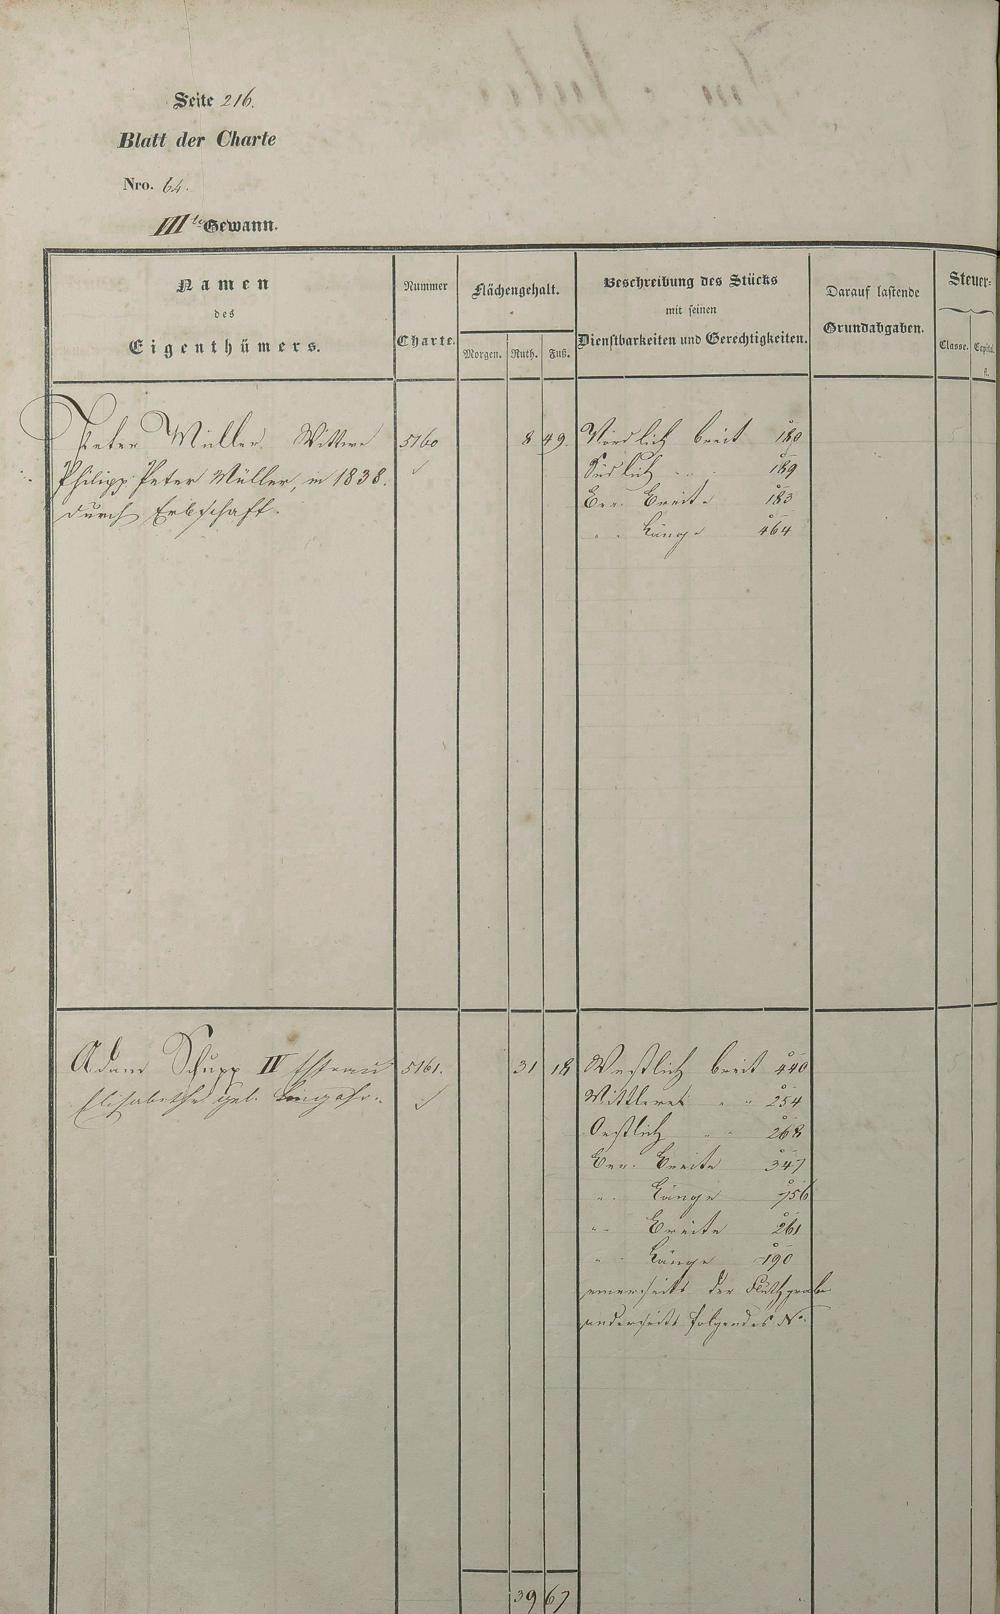 Seite 216.
Blatt der Charte
Nro. 64.
III te Gewann.
Namen
des
Eigenthümers.
Nummer
Charte.
Flächengehalt.
Morgen. Ruth. Fuß.
Beschreibung des Stücks
mit seinen
Dienstbarkeiten und Gerechtigkeiten.
Darauf lastende
Grundabgaben.
Steuer-
Classe. Capital.
fl.
Peter Müller Wittwe 5160 8 49. Nördlich breit 180
Philipp Peter Müller, in 1838. Südlich " " 189
durch Erbschaft. Ber. Breite 183
" " Länge 464
Adam Schupp IV Ehefrau 5161. 31 18 Westlich breit 440
Elisabetha geb. Mittlere " " 254
Oestlich " " 268
Ber. Breite 347
" Länge 756
" Breite 261
" Länge 190
einerseits der Fluthgraben
anderseits folgendes No.
39 67